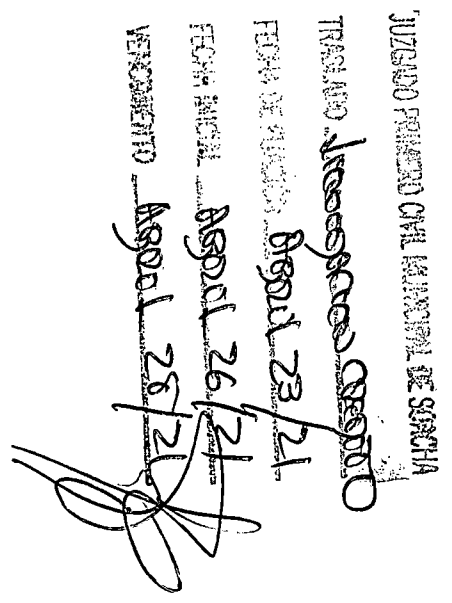 JUZGADO PRIMERO CIVIL MUNICIPAL DE SOACHA
TRASLADO Liquidacion Credito
FECHA DE FIJACION Abril 23/21
FECHA INICIAL Abril 26/21
VENCIMIENTO Abril 28/21